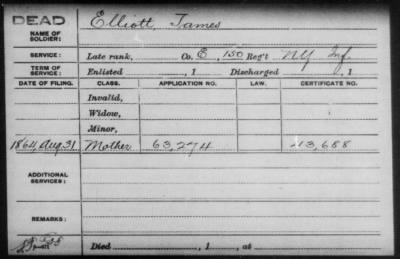 DEAD
NAME OF SOLDIER: Elliott, James
SERVICE: Late rank, Co. E, 150 Reg't NY Inf.
TERM OF SERVICE: Enlisted , 1 Discharged , 1
DATE OF FILING. CLASS. APPLICATION NO. LAW. CERTIFICATE NO.
Invalid,
Widow,
Minor,
1864, Aug. 31 Mother 63,274 43,688
ADDITIONAL SERVICES:
REMARKS:
Died , 1 , at